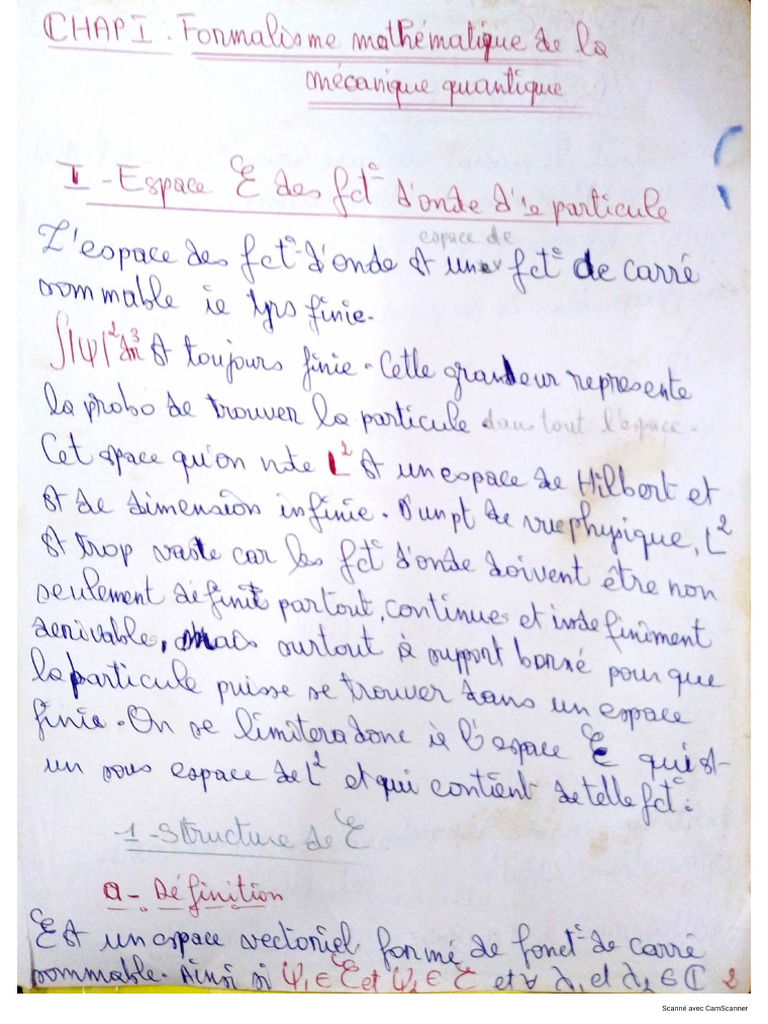 CHAP I : Formalisme mathématique de la
mécanique quantique
I - Espace ℰ des fct° d'onde d'1e particule
espace de
L'espace des fct° d'onde est une fct° de carré
sommable ie tjrs finie.
∫|ψ|² dr³ est toujours finie. Cette grandeur represente
la proba de trouver la particule dans tout l'espace.
Cet space qu'on note L² est un espace de Hilbert et
est de dimension infinie. D'un pt de vue physique, L²
est trop vaste car les fct° d'onde doivent être non
seulement définit partout, continues et indefiniment
derivables, mais surtout à support borné pour que
la particule puisse se trouver dans un espace
finie. On se limitera donc à l'espace ℰ qui est
un sous espace de L² et qui contient de telle fct°.
1 - Structure de ℰ
a - Définition
ℰ est un espace vectoriel formé de fonct° de carré
sommable. Ainsi si ψ₁ ∈ ℰ et ψ₂ ∈ ℰ et ∀ λ₁ et λ₂ ∈ ℂ 2
Scanné avec CamScanner